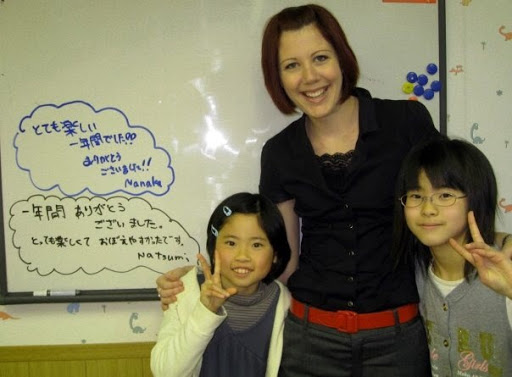 とても楽しい
一年間でした!!
ありがとう
ございました!!
Nanako
一年間 ありがとう
ございました。
とっても楽しくて おぼえやすかったです。
Natsumi